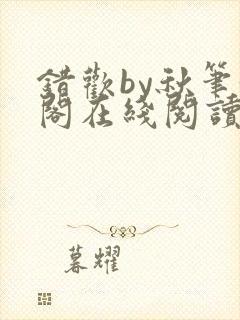 錯歡by秋筆
閣在綫閱讀
暮耀